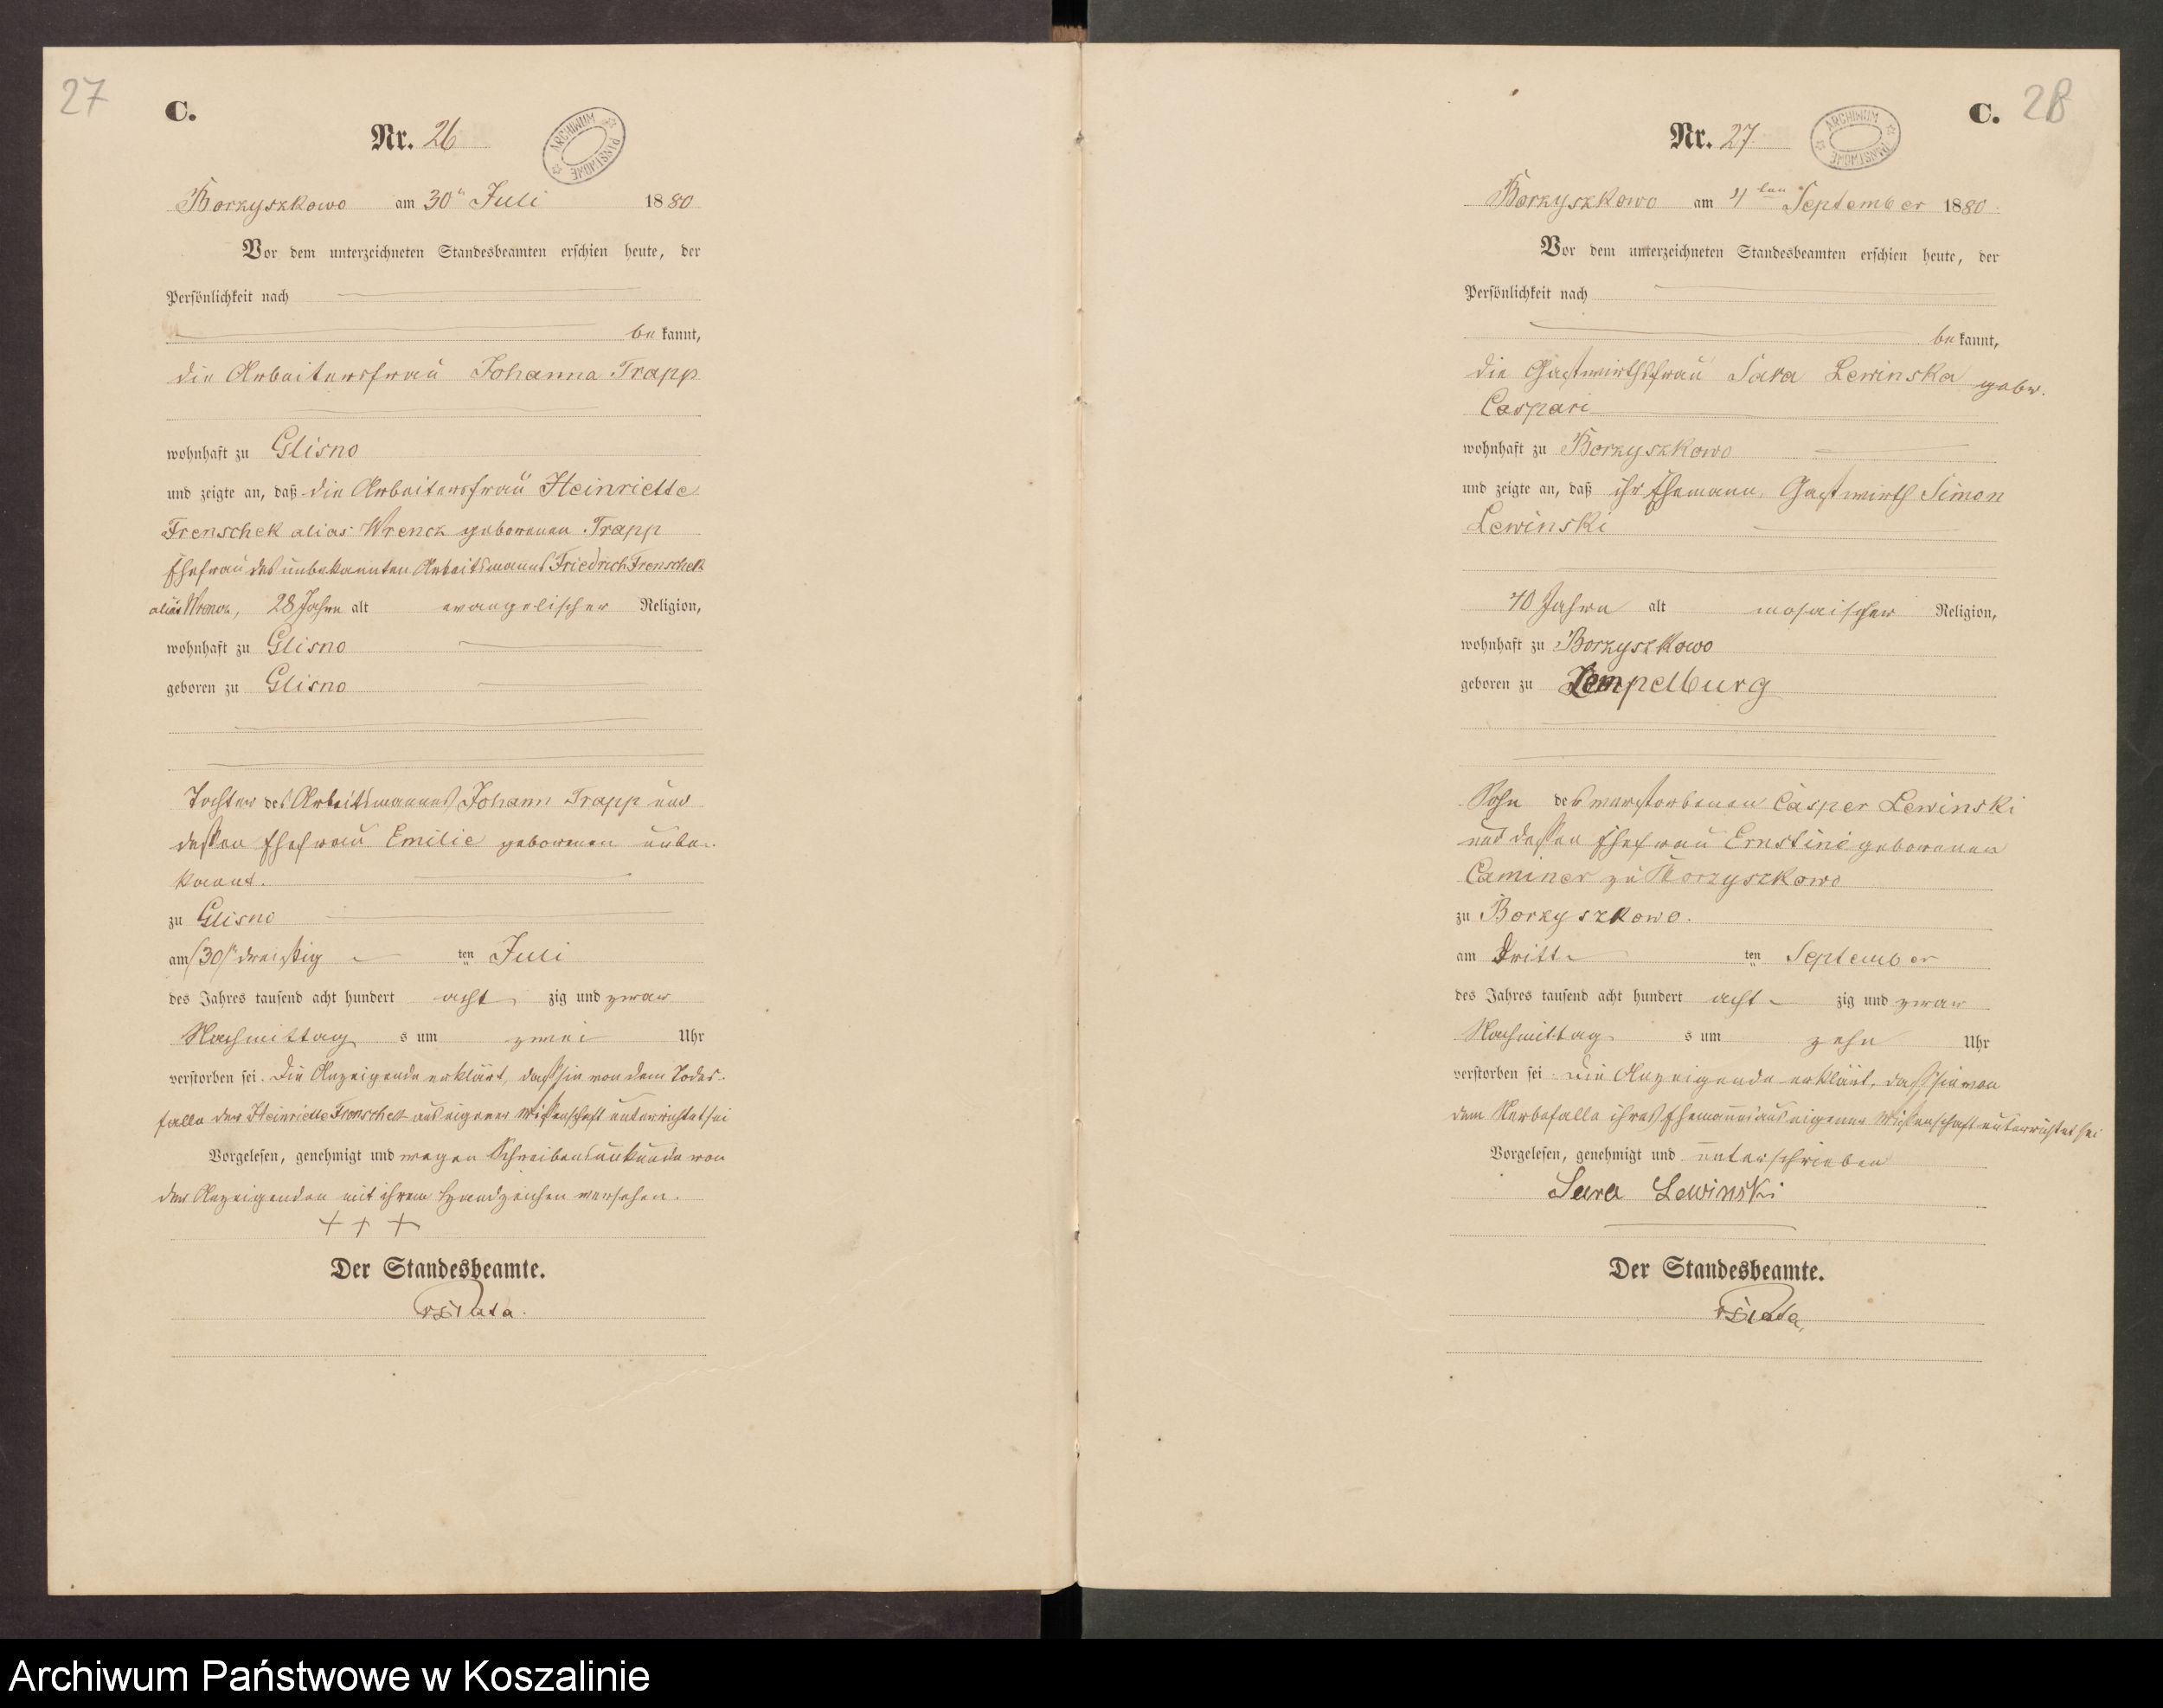 27
C.
Nr. 26
ARCHIWUM PAŃSTWOWE
Borzyszkowo am 30ᵗ Juli 1880
Vor dem unterzeichneten Standesbeamten erschien heute, der
Persönlichkeit nach
bekannt,
die Arbeitersfrau Johanna Trapp
wohnhaft zu Glisno
und zeigte an, daß die Arbeitersfrau Heinriette
Frenschek alias Wrenck geborenen Trapp
Ehefrau des unbekannten Arbeitsmanns Friedrich Frenschek
alias Wrenck, 28 Jahre alt evangelischer Religion,
wohnhaft zu Glisno
geboren zu Glisno
Tochter des Arbeitsmannes Johann Trapp und
dessen Ehefrau Emilie geborenen unbe-
kannt.
zu Glisno
am /30/ dreißig ten Juli
des Jahres tausend acht hundert acht zig und zwar
Nachmittag s um zwei Uhr
verstorben sei. Die Anzeigende erklärt, daß sie von dem Todes-
falle der Heinriette Frenschek aus eigener Wissenschaft unterrichtet sei
Vorgelesen, genehmigt und wegen Schreibensunkunde von
der Anzeigenden mit ihrem Handzeichen versehen.
+ + +
Der Standesbeamte.
C. 28
Nr. 27.
ARCHIWUM PAŃSTWOWE
Borzyszkowo am 4ten September 1880.
Vor dem unterzeichneten Standesbeamten erschien heute, der
Persönlichkeit nach
bekannt,
die Gastwirthsfrau Sara Lewinska gebr.
Caspari
wohnhaft zu Borzyszkowo
und zeigte an, daß ihr Ehemann, Gastwirth Simon
Lewinski
70 Jahre alt mosaischer Religion,
wohnhaft zu Borzyszkowo
geboren zu Zempelburg
Sohn des verstorbenen Casper Lewinski
und dessen Ehefrau Ernstine geborenen
Caminer zu Borzyszkowo
zu Borzyszkowo.
am Dritte ten September
des Jahres tausend acht hundert acht zig und zwar
Nachmittag s um zehn Uhr
verstorben sei. Die Anzeigende erklärt, daß sie von
dem Sterbefalle ihres Ehemannes aus eigener Wissenschaft unterrichtet sei
Vorgelesen, genehmigt und unterschrieben
Sara Lewinski
Der Standesbeamte.
Archiwum Państwowe w Koszalinie